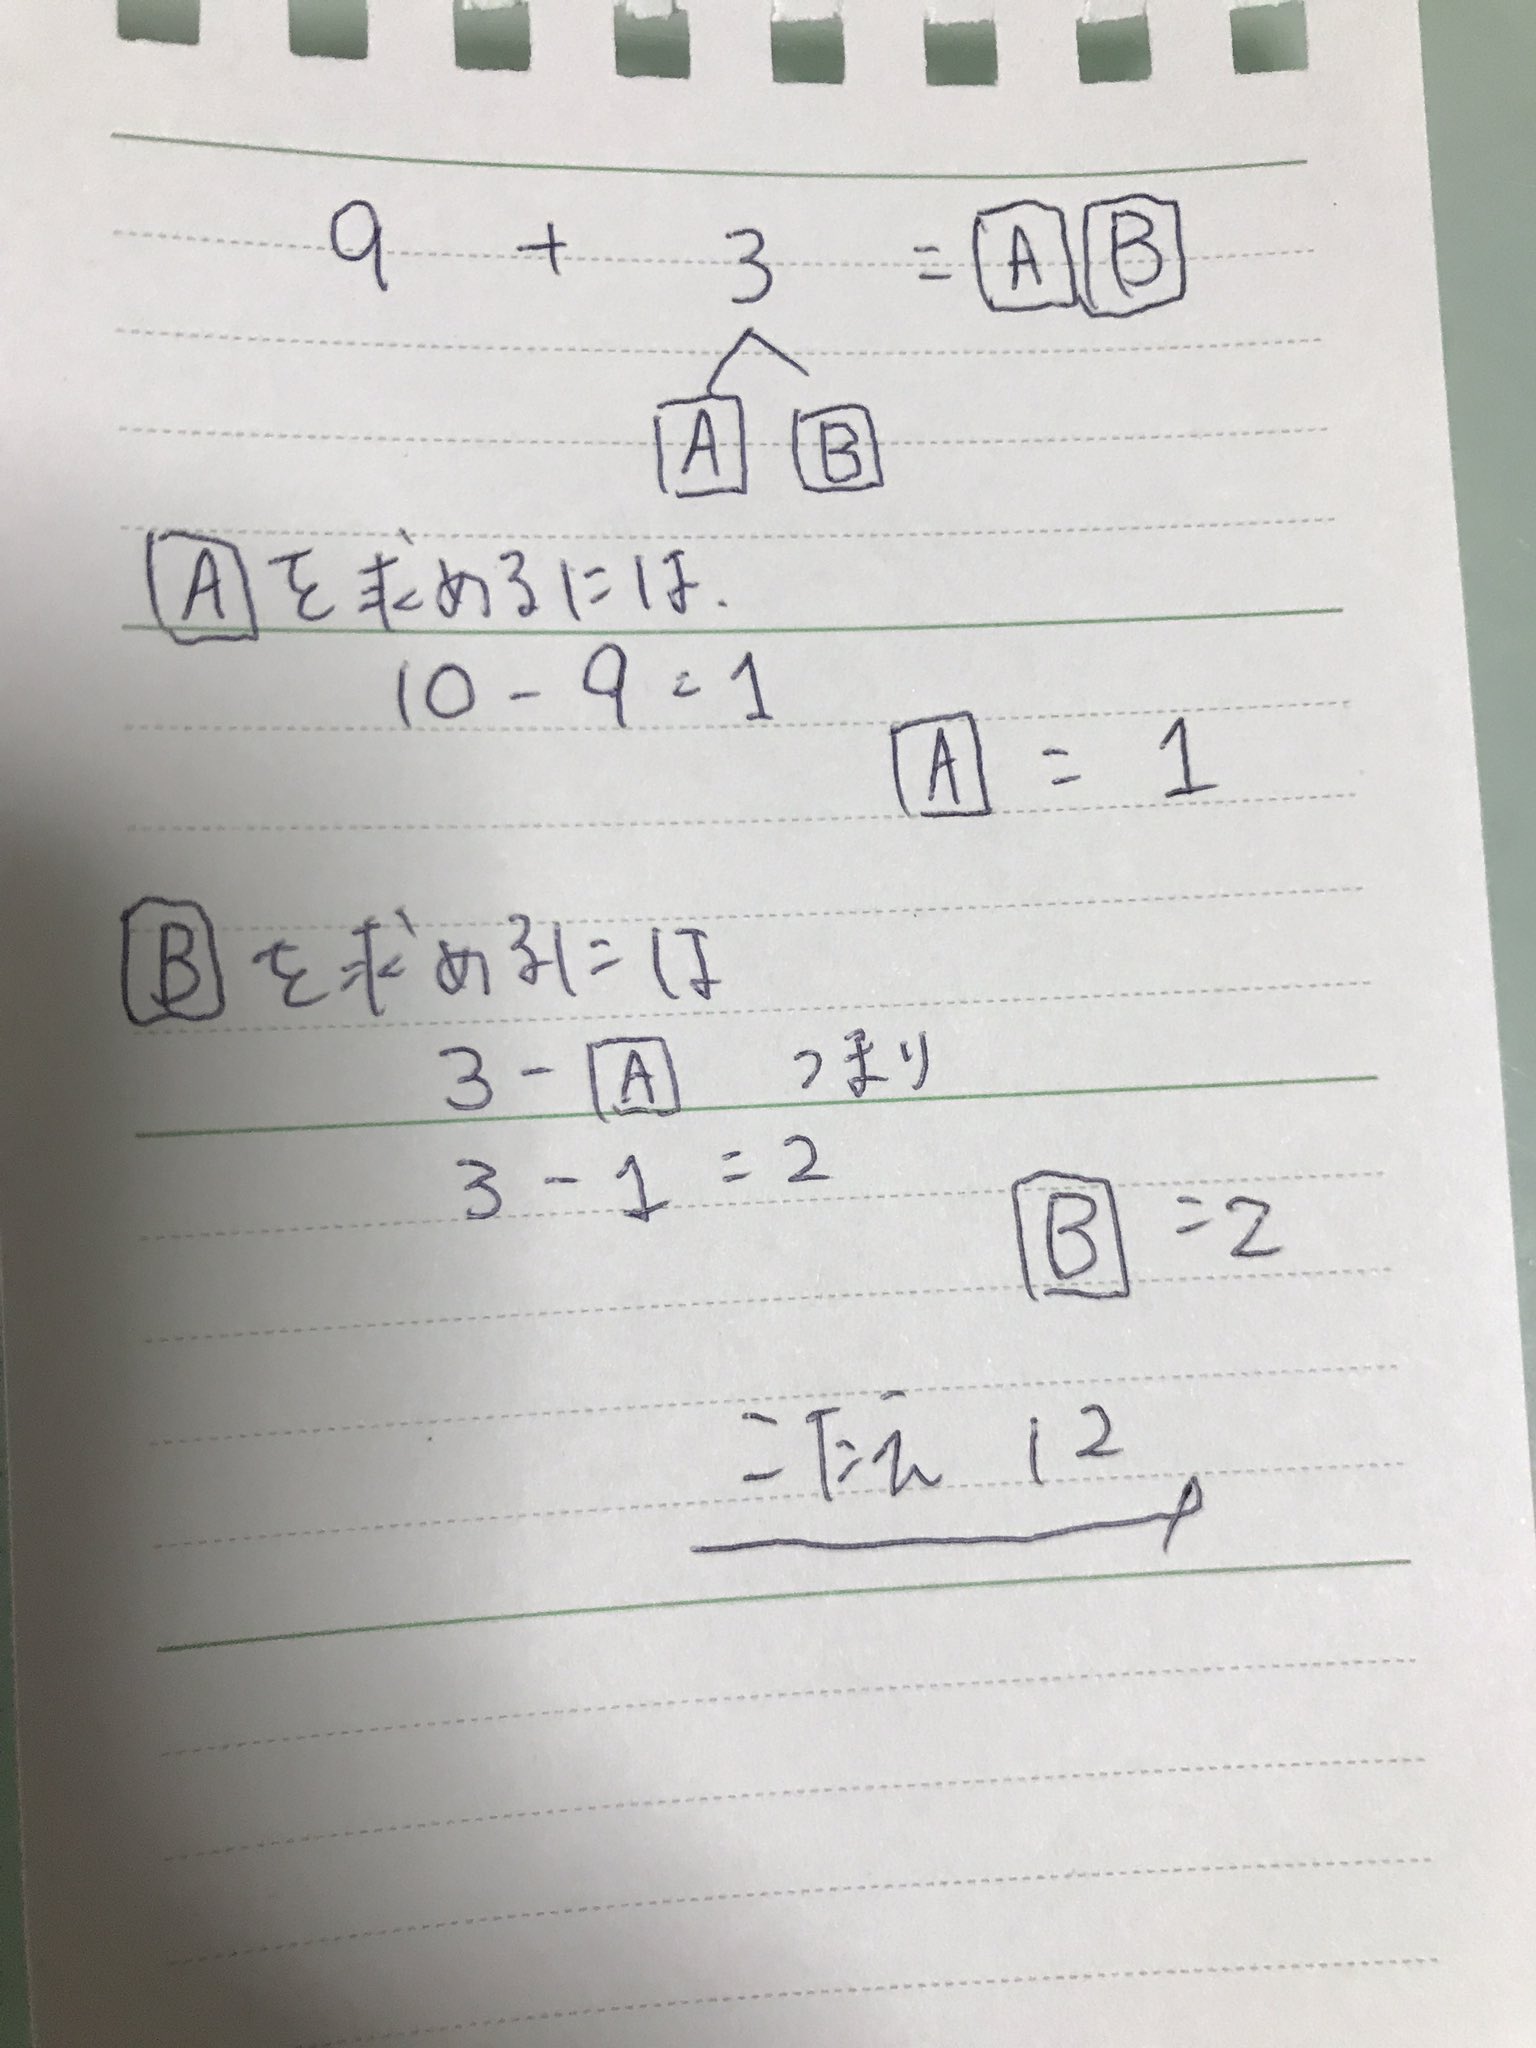 9 + 3 = A B
A B
Aを求めるには.
10 - 9 = 1
A = 1
Bを求めるには
3 - A つまり
3 - 1 = 2
B = 2
こたえ 12